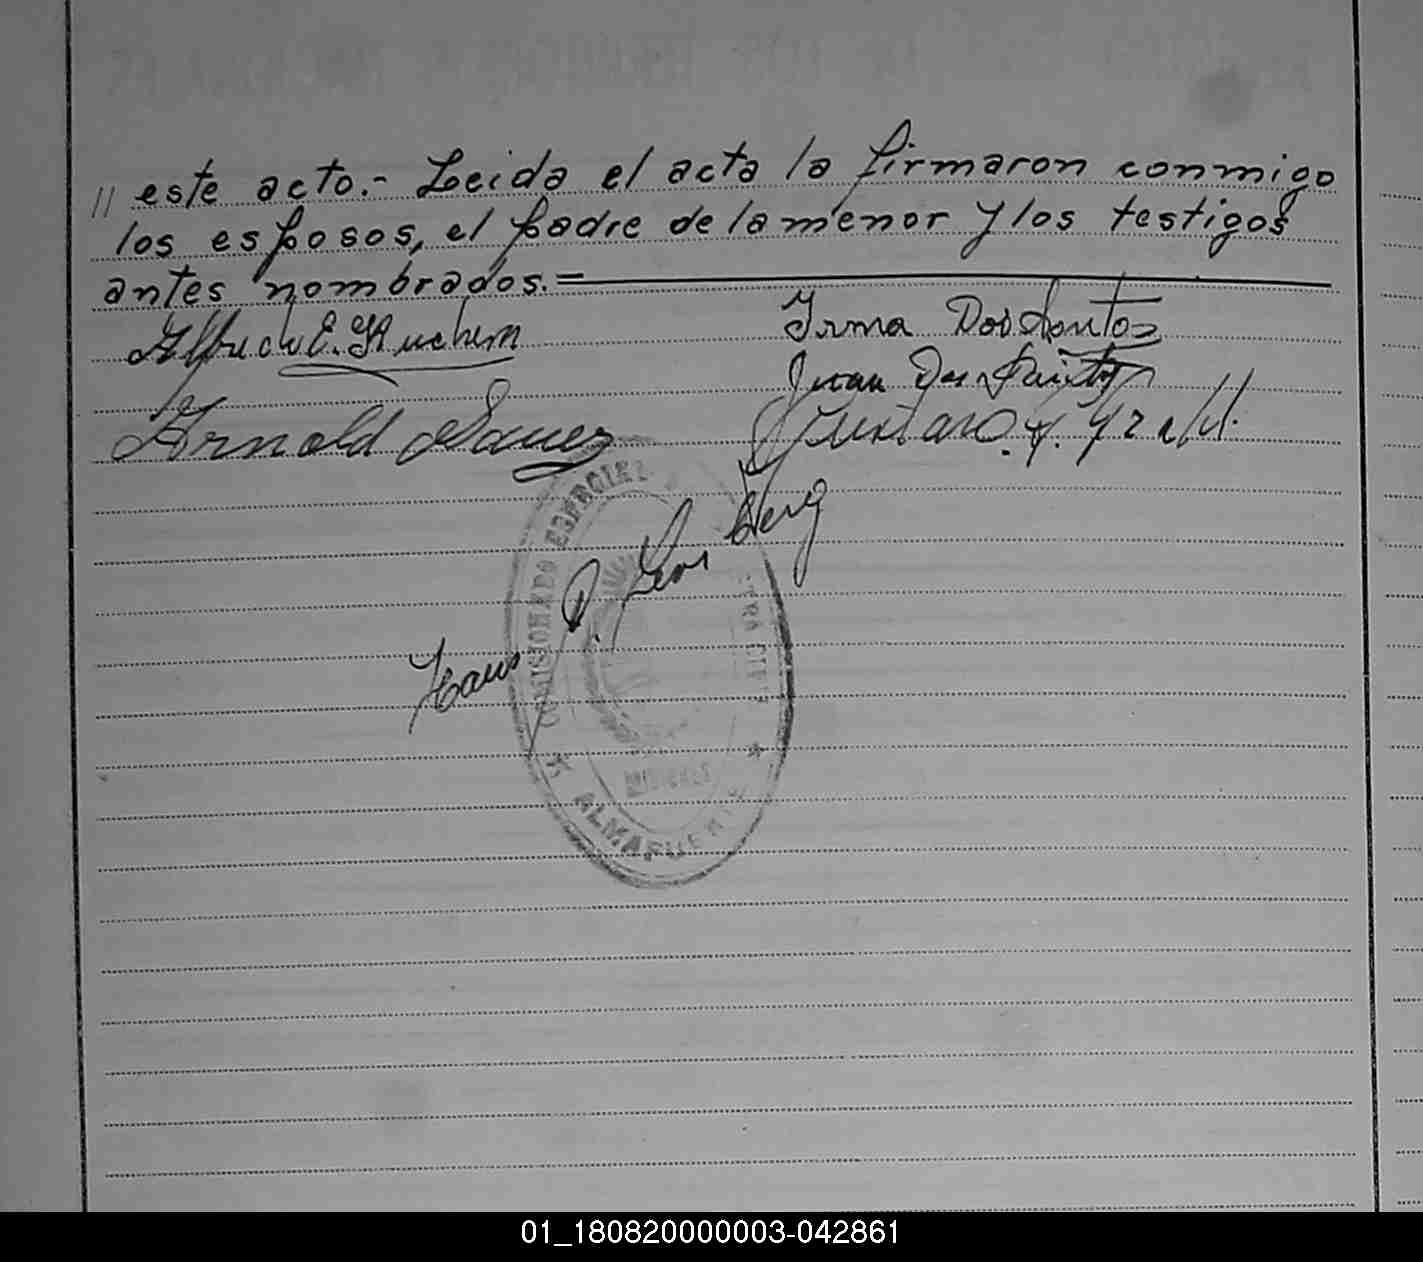 // este acto.- Leida el acta la firmaron conmigo
los esposos, el padre de la menor y los testigos
antes nombrados.=
Alfredo E. Irma Dos Santos
Juan Dos Santos
Arnold Gustavo
Hans
COMISIONADO
ALMAFUERTE
MISIONES
01_180820000003-042861